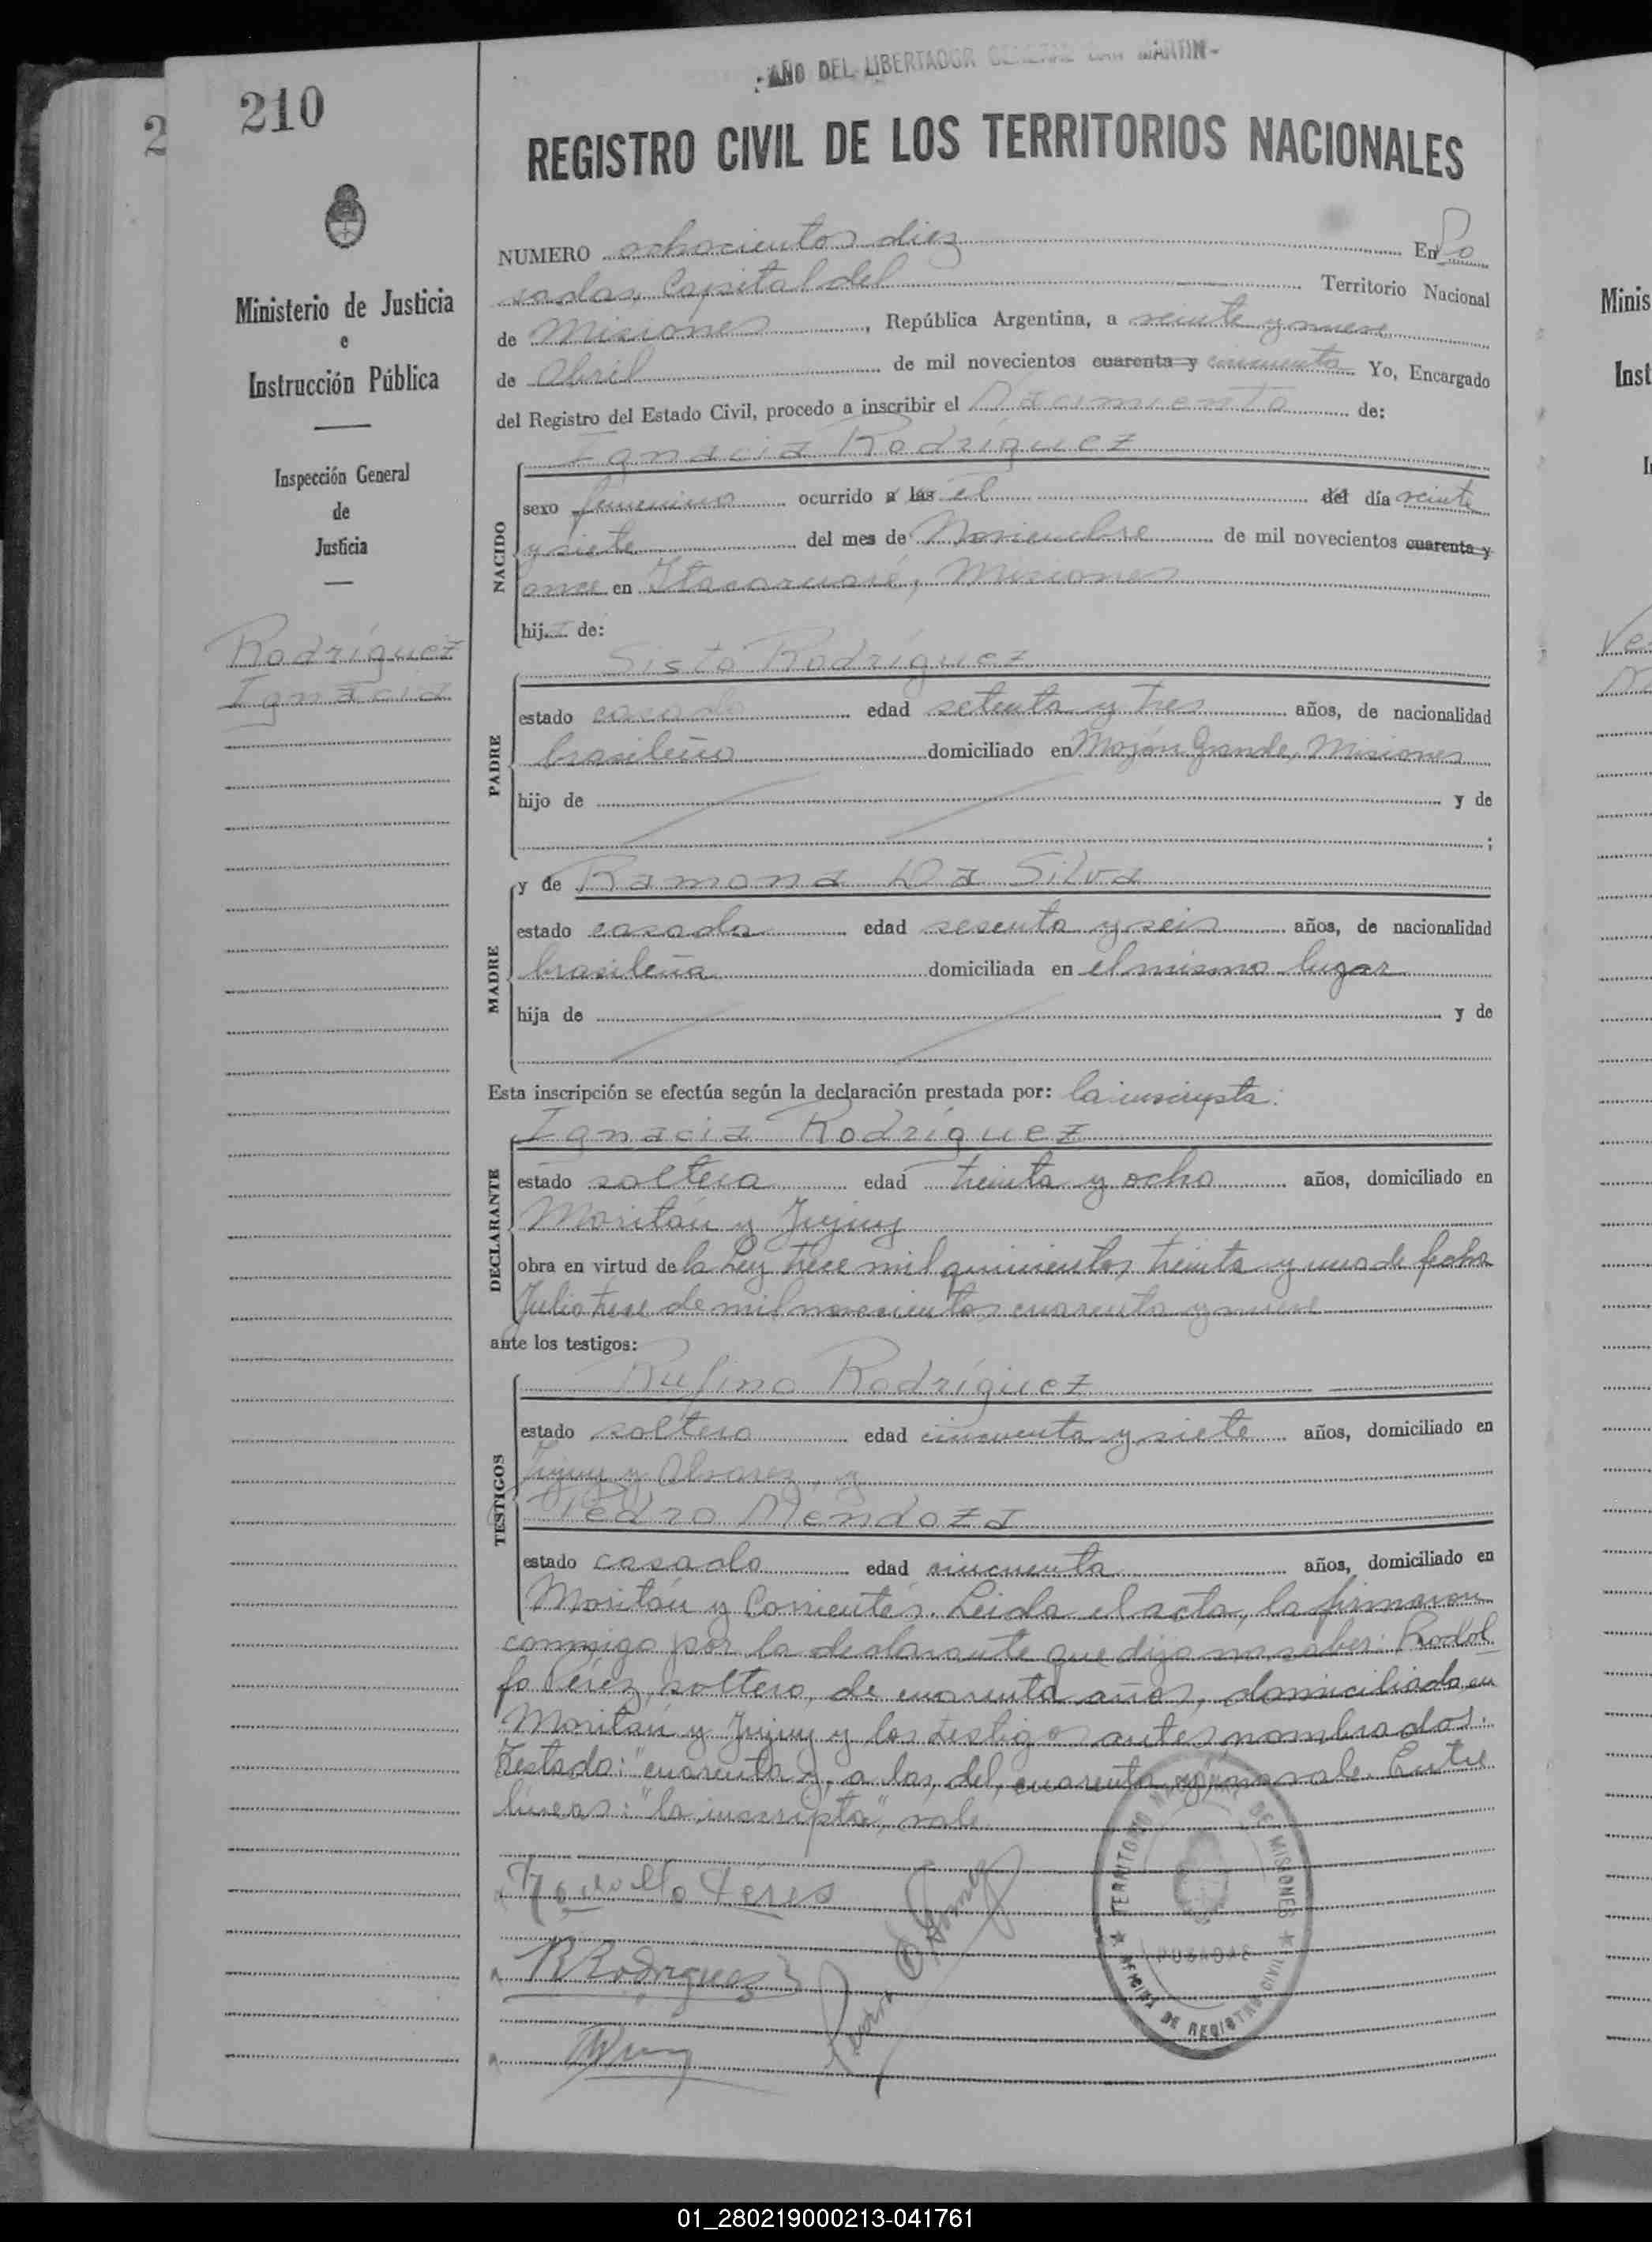 -AÑO DEL LIBERTADOR GENERAL SAN MARTIN-
210
2
REGISTRO CIVIL DE LOS TERRITORIOS NACIONALES
Ministerio de Justicia
e
Instrucción Pública
Inspección General
de
Justicia
Rodríguez
Ignacia
NUMERO ochocientos diez En Po
sadas, Capital del Territorio Nacional
de Misiones, República Argentina, a veinte y nueve
de Abril de mil novecientos cuarenta y cincuenta Yo, Encargado
del Registro del Estado Civil, procedo a inscribir el Nacimiento de:
Ignacia Rodríguez
NACIDO
sexo femenino ocurrido a las el del día veinte
y siete del mes de Noviembre de mil novecientos cuarenta y
once en Itacaruaré, Misiones
hija de:
Sisto Rodríguez
PADRE
estado casado edad setenta y tres años, de nacionalidad
brasileño domiciliado en Mojón Grande, Misiones
hijo de y de
;
y de Ramona Da Silva
MADRE
estado casada edad sesenta y seis años, de nacionalidad
brasileña domiciliada en el mismo lugar
hija de y de
Esta inscripción se efectúa según la declaración prestada por: la inscripta:
Ignacia Rodríguez
DECLARANTE
estado soltera edad treinta y ocho años, domiciliado en
Moritán y Jujuy
obra en virtud de la Ley trece mil quinientos treinta y uno de fecha
Julio trece de mil novecientos cuarenta y nueve
ante los testigos:
Rufino Rodríguez
TESTIGOS
estado soltero edad cincuenta y siete años, domiciliado en
Jujuy y Alvarez, y
Pedro Mendoza
estado casado edad cincuenta años, domiciliado en
Moritán y Corrientes. Leida el acta, la firmaron
conmigo por la declarante que dijo no saber: Rodol
fo Pérez, soltero, de cuarenta años, domiciliado en
Moritán y Jujuy y los testigos antes nombrados.
Testado: "cuarenta y, a las, del, cuarenta y, no vale. Entre
líneas: "la inscripta", vale.
Rodolfo Peres
R Rodriguez
TERRITORIO NACIONAL DE MISIONES
POSADAS
OFICINA DE REGISTRO CIVIL
Minis
Inst
01_280219000213-041761